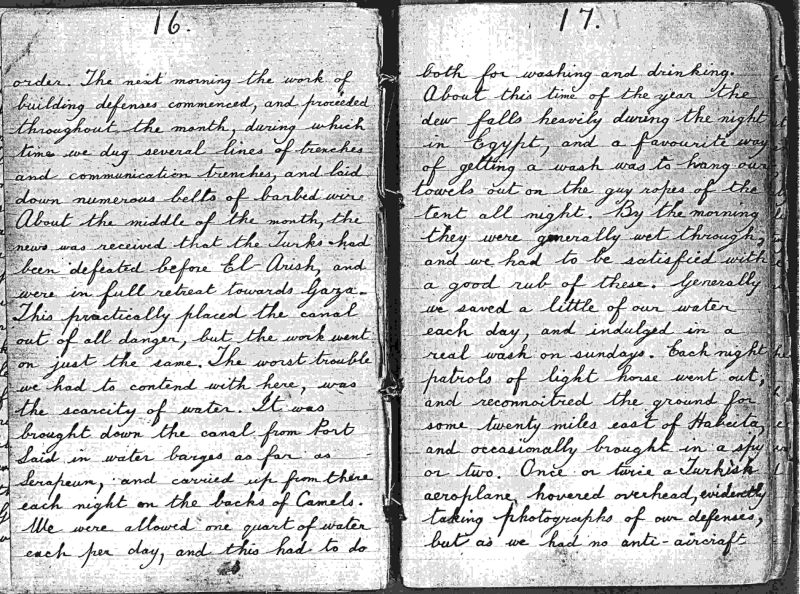 16.
order. The next morning the work of
building defenses commenced, and proceeded
throughout the month, during which
time we dug several lines of trenches
and communication trenches, and laid
down numerous belts of barbed wire
About the middle of the month, the
news was received that the Turks had
been defeated before El Arish, and
were in full retreat towards Gaza.
This practically placed the canal
out of all danger, but the work went
on just the same. The worst trouble
we had to contend with here, was
the scarcity of water. It was
brought down the canal from Port
Said in water barges as far as
Serapeum, and carried up from there
each night on the backs of Camels.
We were allowed one quart of water
each per day, and this had to do
17.
both for washing and drinking.
About this time of the year the
dew falls heavily during the night
in Egypt, and a favourite way
of getting a wash was to hang our
towels out on the guy ropes of the
tent all night. By the morning
they were generally wet through,
and we had to be satisfied with
a good rub of these. Generally
we saved a little of our water
each day, and indulged in a
real wash on sundays. Each night
patrols of light horse went out,
and reconnoitred the ground for
some twenty miles east of Habeita,
and occasionally brought in a spy
or two. Once or twice a Turkish
aeroplane hovered overhead, evidently
taking photographs of our defenses,
but as we had no anti-aircraft